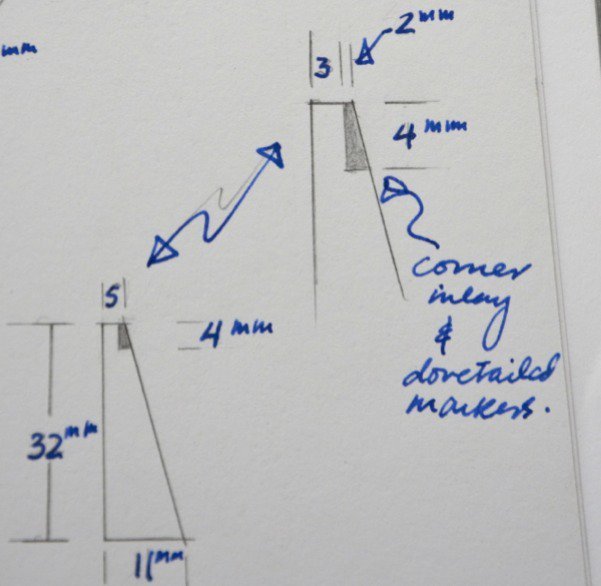 mm
2mm
3
4mm
corner
inlay
&
dovetailed
markers.
5
4mm
32mm
11mm